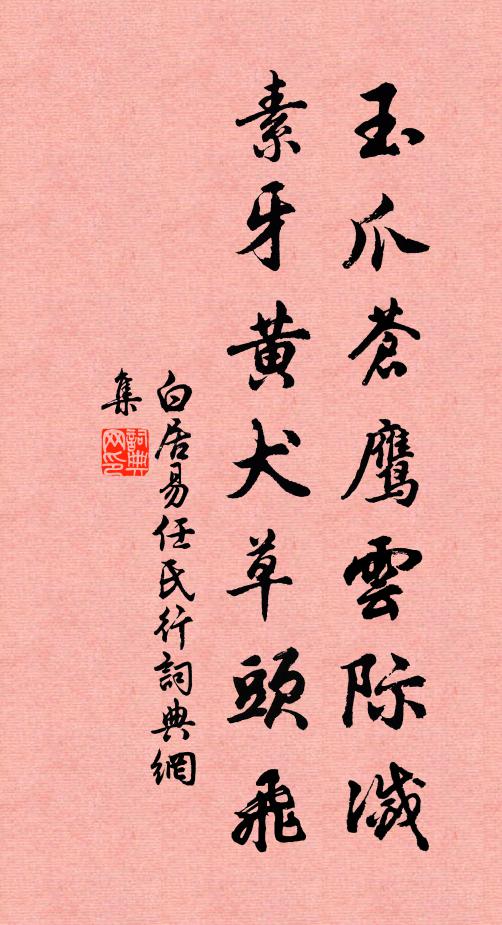 玉爪蒼鹰雲际滅
素牙黄犬草頭飛
白居易任民行詞典網
集
詞典网印